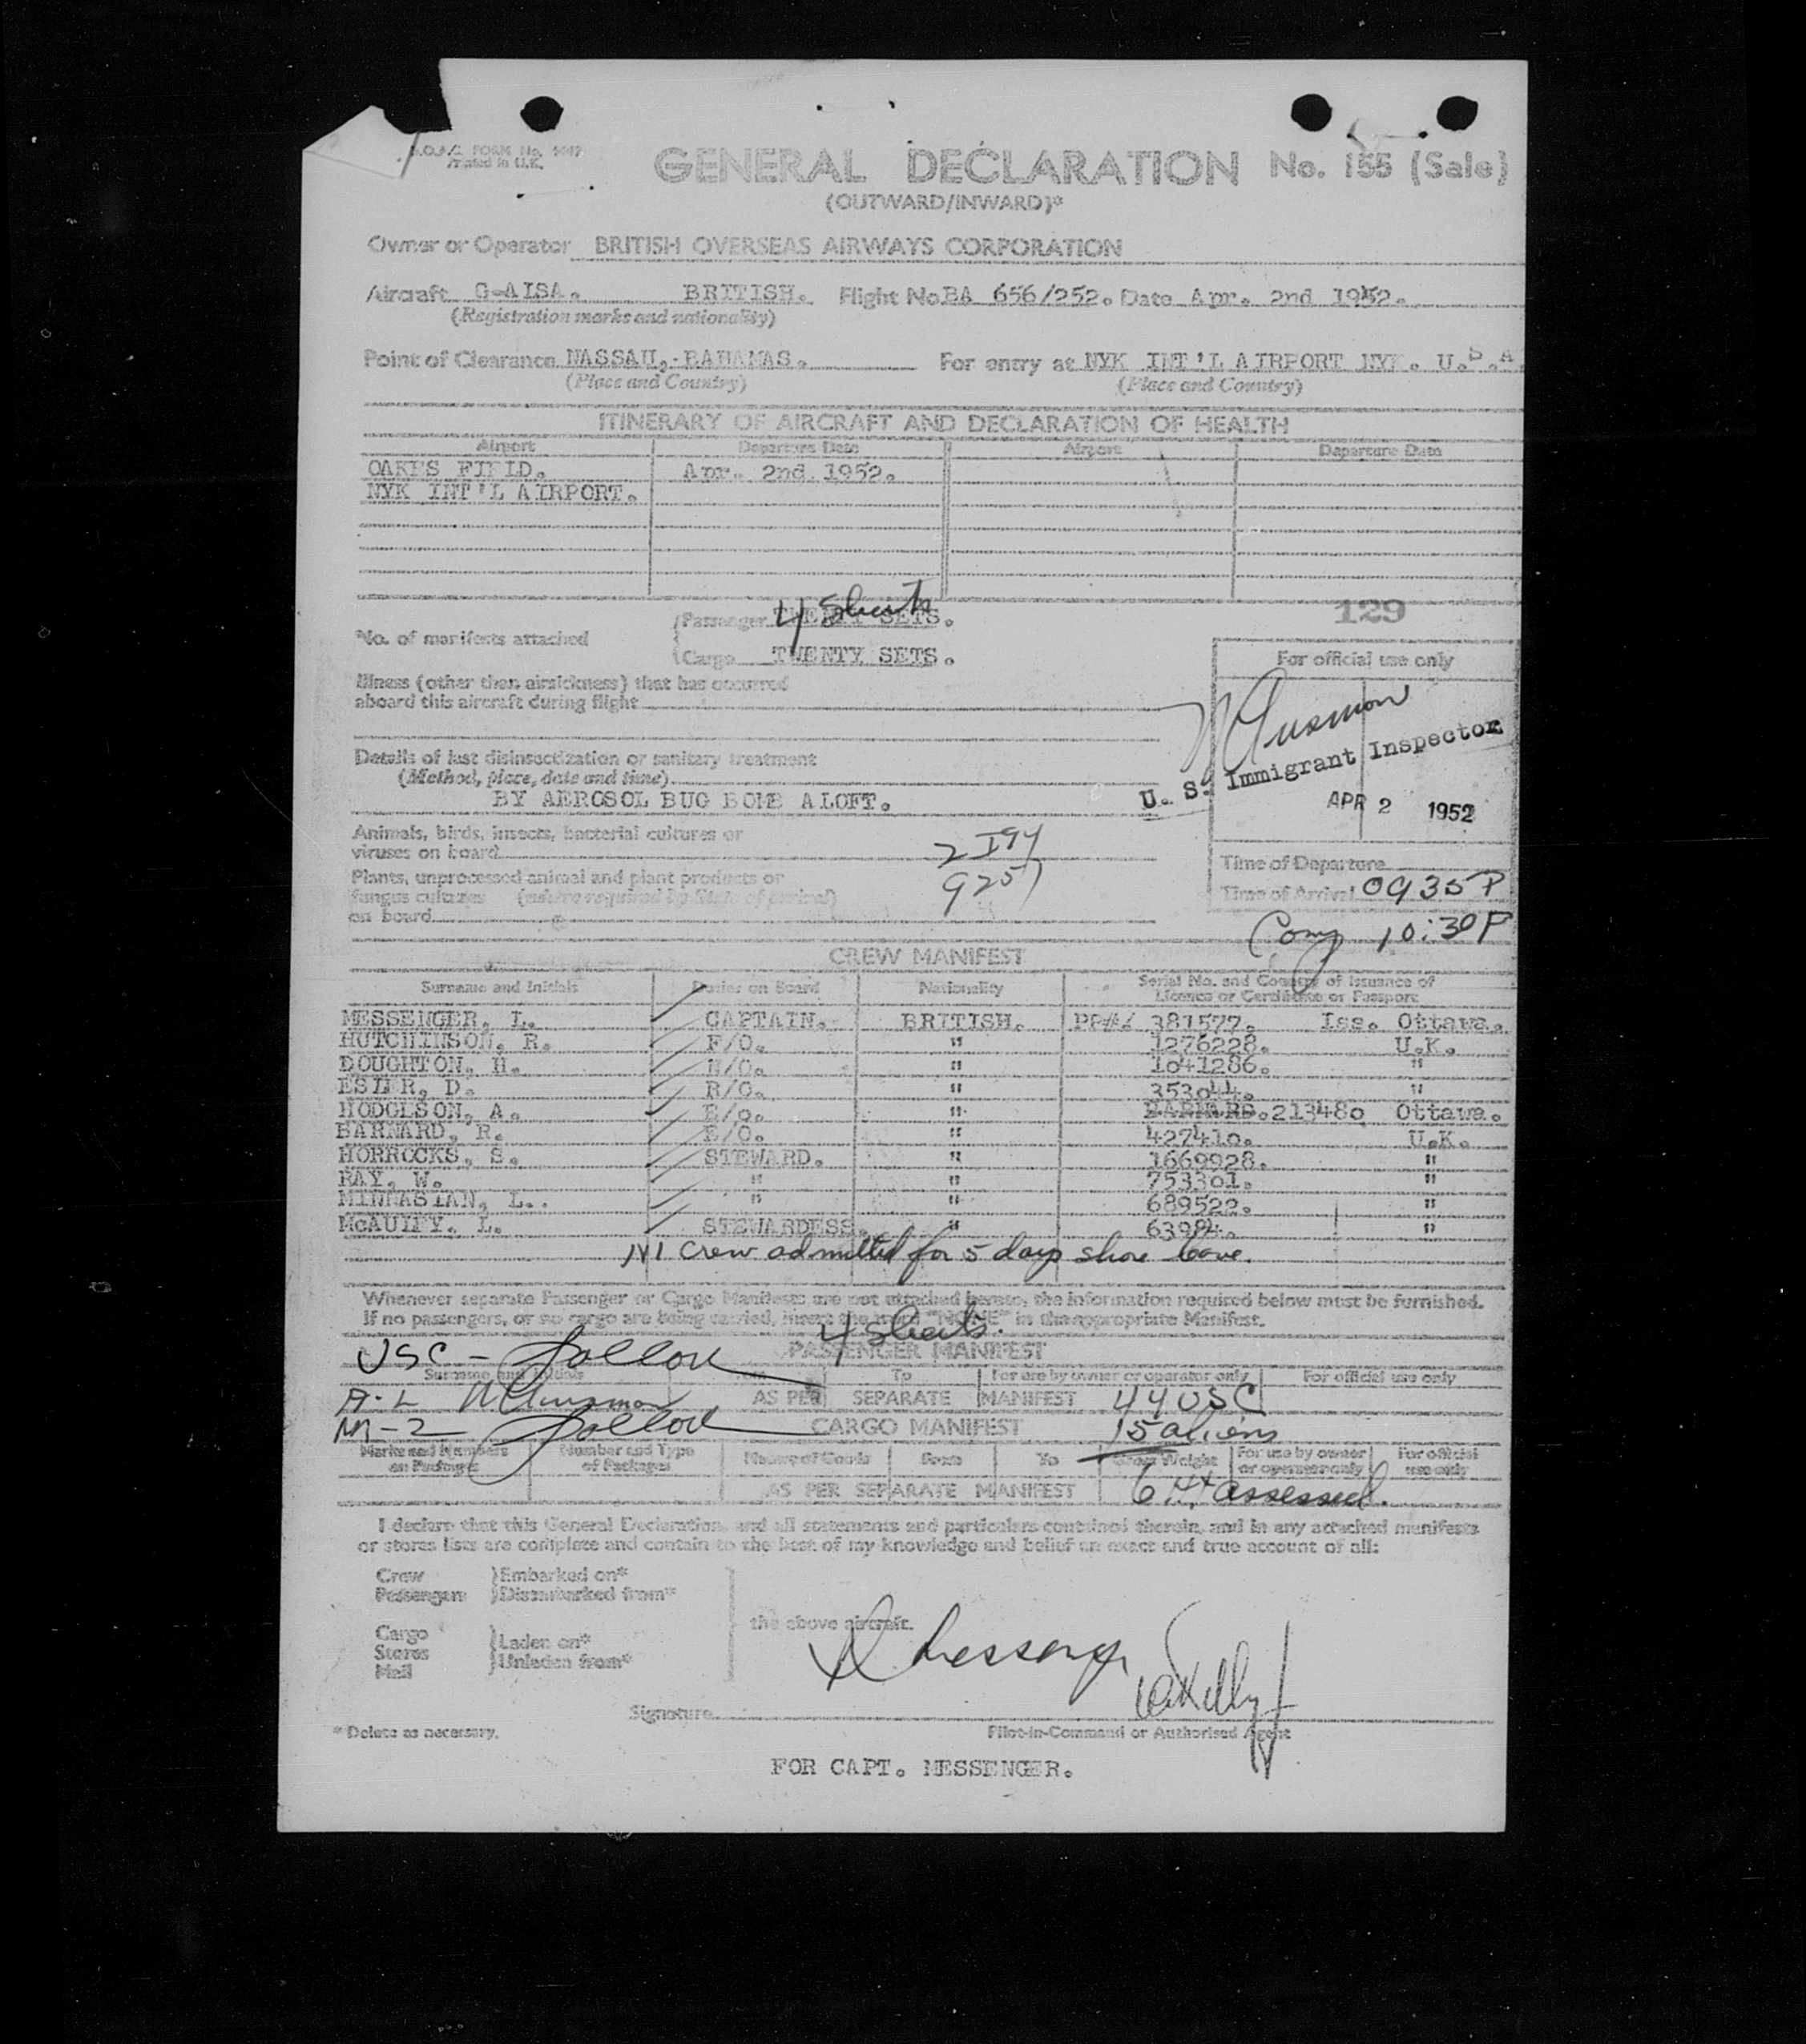 B.O.A.C. FORM No.
Printed in U.K.
GENERAL DECLARATION No. 155 (Sale)
(OUTWARD/INWARD)*
Owner or Operator BRITISH OVERSEAS AIRWAYS CORPORATION
Aircraft G-AISA. BRITISH. Flight No. BA 656/252. Date Apr. 2nd 1952.
(Registration marks and nationality)
Point of Clearance NASSAU, BAHAMAS. For entry at NYK INT'L AIRPORT NYK. U.S.A
(Place and Country) (Place and Country)
ITINERARY OF AIRCRAFT AND DECLARATION OF HEALTH
Airport Departure Date Airport Departure Date
OAKES FIELD. Apr. 2nd. 1952.
NYK INT'L AIRPORT.
4 Sheets
Passenger SETS.
*No. of manifests attached
Cargo TWENTY SETS.
129
For official use only
Illness (other than airsickness) that has occurred
aboard this aircraft during flight
U. S. Immigrant Inspector
APR 2 1952
Details of last disinsectization or sanitary treatment
(Method, place, date and time)
BY AEROSOL BUG BOMB ALOFT.
Animals, birds, insects, bacterial cultures or
viruses on board
Plants, unprocessed animal and plant products or
fungus cultures
on board
Time of Departure
Time of Arrival 0935P
10:30P
CREW MANIFEST
Surname and Initials Duties on Board Nationality Serial No. and Country of Issuance of
Licence or Certificate or Passport
MESSENGER, L. CAPTAIN. BRITISH. PP## 381577. Iss. Ottawa.
HUTCHINSON, R. F/O. " 1276228. U.K.
DOUGHTON, H. N/O. " 1041286. "
ESLER, D. R/O. " 353044. "
HODGLSON, A. E/o. " 213480 Ottawa.
BARNARD, R. E/O. " 427410. U.K.
HORROCKS, S. STEWARD. " 1669928. "
RAY, W. " " 753301. "
MINNASIAN, L.. " " 689522. "
McAULEY. L. STEWARDESS. " 63984. "
Crew admitted for 5 days shore leave.
Whenever separate Passenger or Cargo Manifests are not attached hereto, the information required below must be furnished.
If no passengers, or no cargo are being carried, insert the word "NONE" in the appropriate Manifest.
4 Sheets.
USC -
PASSENGER MANIFEST
Surname and Initials From To For use by owner or operator only For official use only
AS PER SEPARATE MANIFEST 44 USC
M-2
CARGO MANIFEST
15 aliens
Marks and Numbers on Packages Number and Type of Packages Nature of Goods From To Gross Weight For use by owner or operator only For official use only
AS PER SEPARATE MANIFEST
assessed.
I declare that this General Declaration, and all statements and particulars contained therein, and in any attached manifests
or stores lists are complete and contain to the best of my knowledge and belief an exact and true account of all:
Crew Embarked on*
Passengers Disembarked from*
the above aircraft.
Cargo
Stores Laden on*
Mail Unladen from*
Signature
* Delete as necessary. Pilot-in-Command or Authorised Agent
FOR CAPT. MESSENGER.